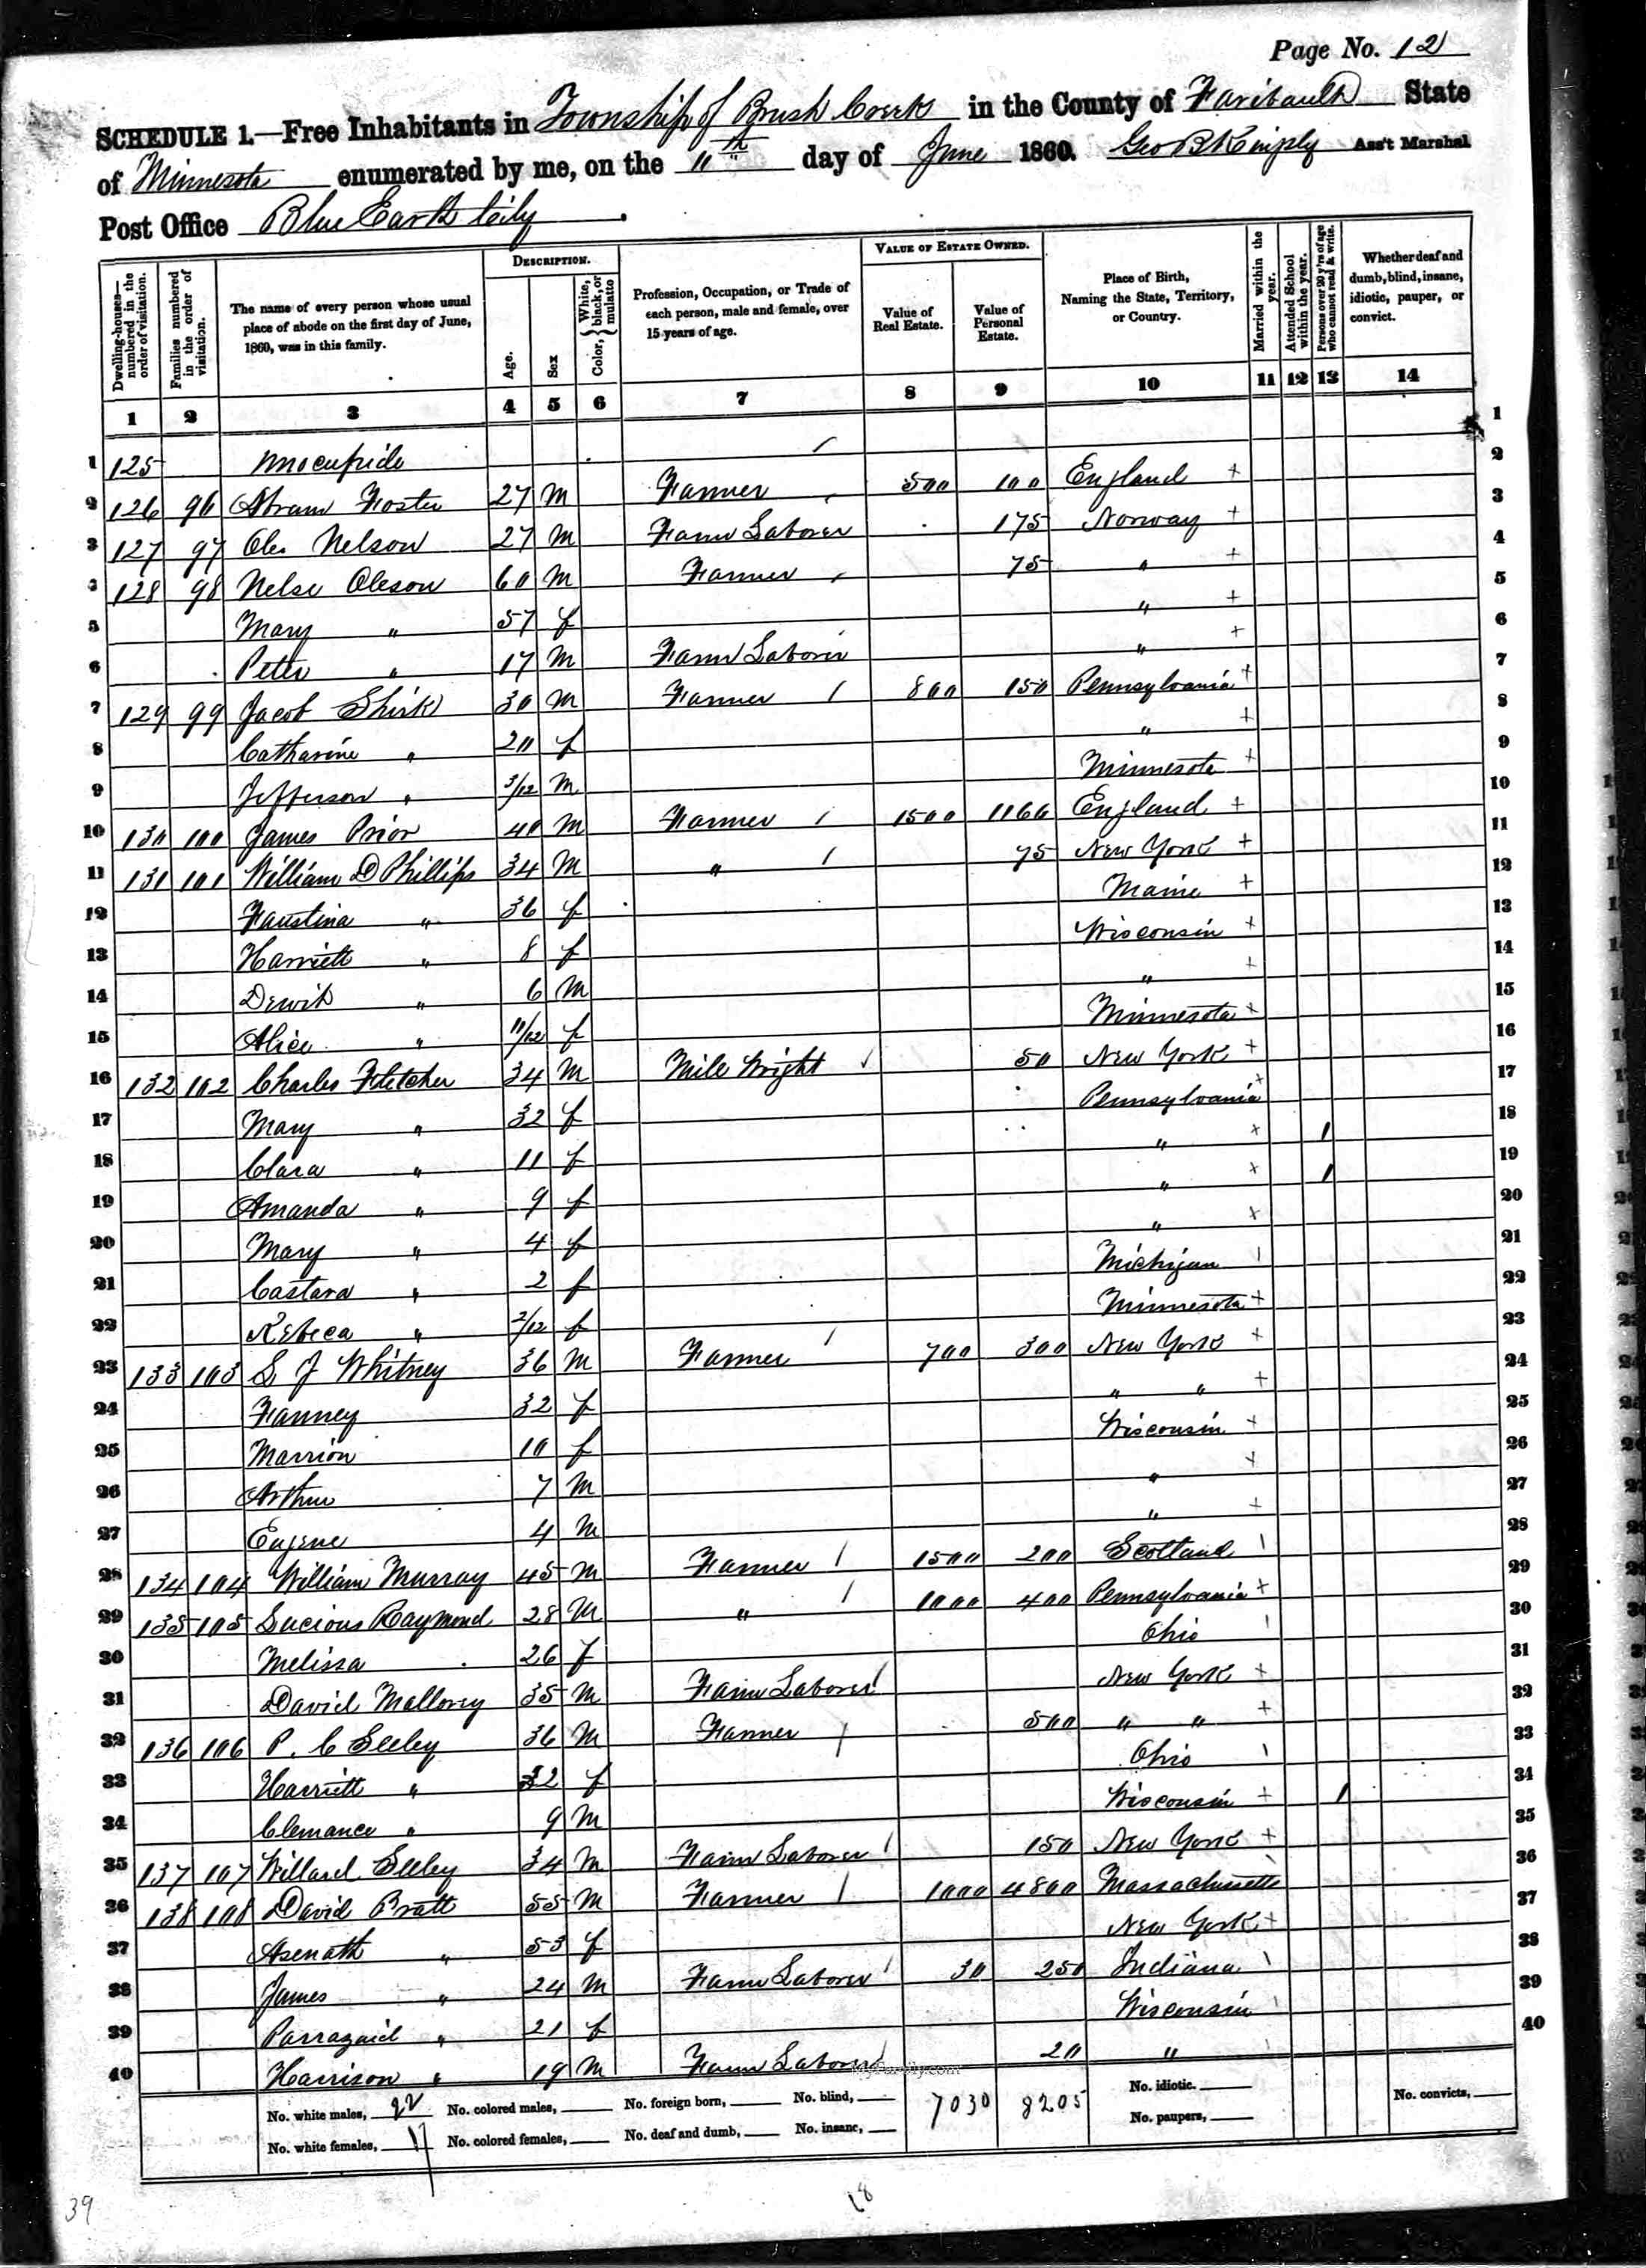 Page No. 12
SCHEDULE 1.—Free Inhabitants in Township of Brush Creek in the County of Faribault State
of Minnesota enumerated by me, on the 11th day of June 1860. Geo B Kingsly Ass't Marshal
Post Office Blue Earth City
Dwelling-houses—numbered in the order of visitation.
Families numbered in the order of visitation.
The name of every person whose usual place of abode on the first day of June, 1860, was in this family.
DESCRIPTION.
Age.
Sex
Color, { White, black, or mulatto
Profession, Occupation, or Trade of each person, male and female, over 15 years of age.
VALUE OF ESTATE OWNED.
Value of Real Estate.
Value of Personal Estate.
Place of Birth, Naming the State, Territory, or Country.
Married within the year.
Attended School within the year.
Persons over 20 y'rs of age who cannot read & write.
Whether deaf and dumb, blind, insane, idiotic, pauper, or convict.
1 2 3 4 5 6 7 8 9 10 11 12 13 14
1 125 unocupide / 1
2 126 96 Abram Foster 27 m Farmer 500 100 England + 2
3 127 97 Ole Nelson 27 m Farm Laborer 175 Norway + 3
3 128 98 Nelse Oleson 60 m Farmer 75 " + 4
5 Mary " 57 f " + 5
6 Peter " 17 m Farm Laborer " + 6
7 129 99 Jacob Shirk 30 m Farmer / 800 150 Pennsylvania + 7
8 Catharine " 20 f " + 8
9 Jefferson " 3/12 m Minnesota + 9
10 130 100 James Prior 40 m Farmer / 1500 1166 England + 10
11 131 101 William D Phillips 34 m " / 75 New York + 11
12 Faustina " 36 f Maine + 12
13 Harriett " 8 f Wisconsin + 13
14 Dewit " 6 m " + 14
15 Alice " 11/12 f Minnesota + 15
16 132 102 Charles Fletcher 34 m Mile Wright / 50 New York + 16
17 Mary " 32 f Pennsylvania + 17
18 Clara " 11 f " + 1 18
19 Amanda " 9 f " + 1 19
20 Mary " 4 f " + 20
21 Castara " 2 f Michigan / 21
22 Rebeca " 2/12 f Minnesota + 22
23 133 103 S J Whitney 36 m Farmer / 700 300 New York + 23
24 Fanney 32 f " " + 24
25 Marrion 10 f Wisconsin + 25
26 Arthur 7 m " + 26
27 Eugene 4 m " + 27
28 134 104 William Murray 45 m Farmer / 1500 200 Scotland / 28
29 135 105 Lucious Raymond 28 m " / 1000 400 Pennsylvania + 29
30 Melissa 26 f Ohio / 30
31 David Mallorey 35 m Farm Laborer / New York + 31
32 136 106 P. C Seeley 36 m Farmer / 500 " " + 32
33 Harriett " 32 f Ohio / 33
34 Clemance " 9 m Wisconsin + 1 34
35 137 107 Willard Seeley 34 m Farm Laborer / 150 New York + 35
36 138 108 David Pratt 55 m Farmer / 1000 4800 Massachusetts 36
37 Asenath " 53 f New York + 37
38 James " 24 m Farm Laborer / 30 250 Indiana / 38
39 " 21 f Wisconsin / 39
40 Harrison " 19 m Farm Laborer / 20 " / 40
No. white males, 22 No. colored males, No. foreign born, No. blind, 7030 8205 No. idiotic. No. convicts,
No. white females, 17 No. colored females, No. deaf and dumb, No. insane, No. paupers,
39
18